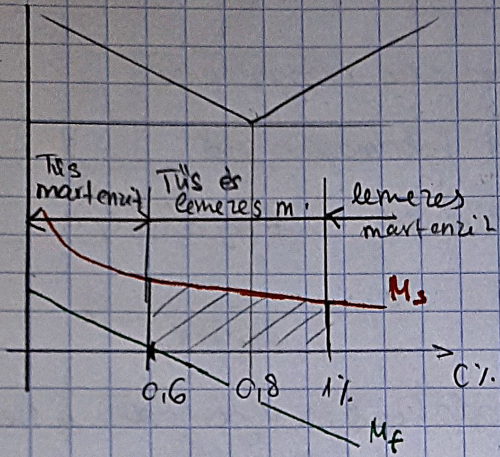 Tűs
martenzit
Tűs és
lemezes m.
lemezes
martenzit
Ms
0,6
0,8
1%
C%
Mf